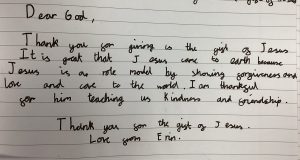 Dear God,
Thank you for giving is the gift of Jesus
It is great that Jesus came to earth because
Jesus is a role model by sharing forgiveness and
love and care to the world. I am thankful
for him teaching us kindness and friendship.
Thank you for the gift of Jesus.
Love from Erin.